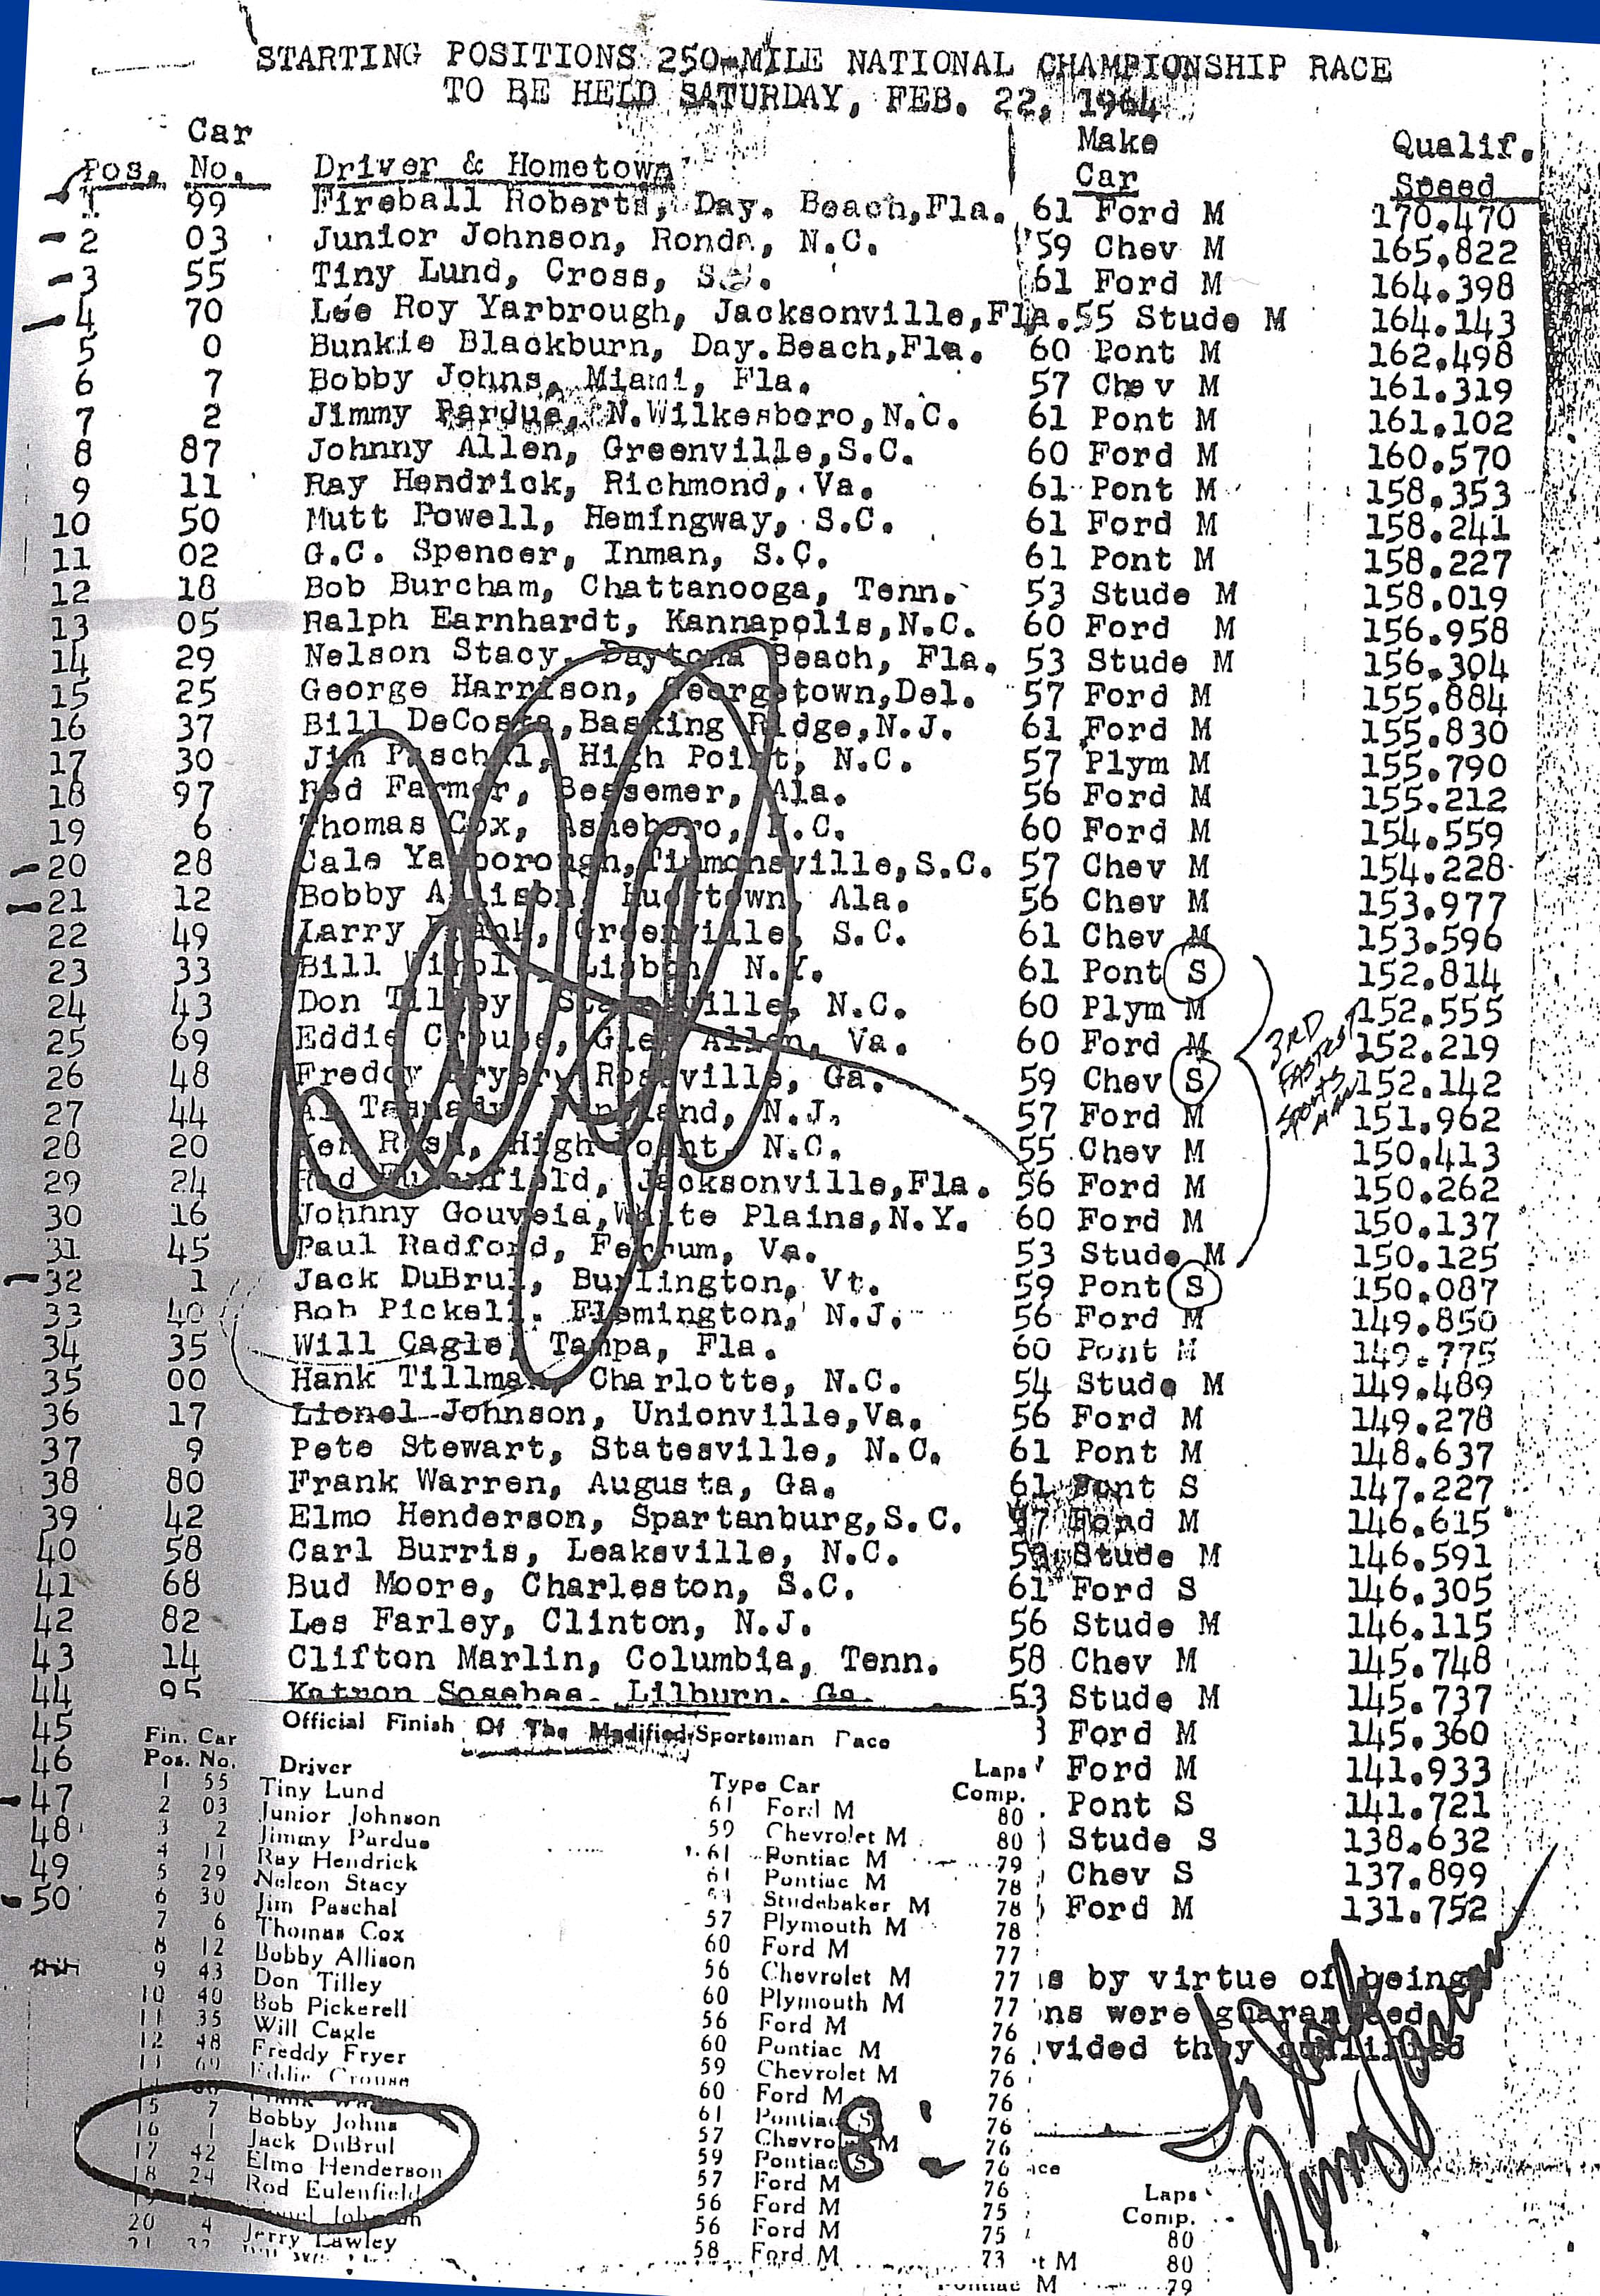 STARTING POSITIONS 250-MILE NATIONAL CHAMPIONSHIP RACE
TO BE HELD SATURDAY, FEB. 22, 1964
Pos. Car No. Driver & Hometown Make Car Qualif. Speed
1 99 Fireball Roberts, Day. Beach,Fla. 61 Ford M 170.470
2 03 Junior Johnson, Ronda, N.C. '59 Chev M 165.822
3 55 Tiny Lund, Cross, S.C. 61 Ford M 164.398
4 70 Lee Roy Yarbrough, Jacksonville,Fla. 55 Stude M 164.143
5 0 Bunkie Blackburn, Day.Beach,Fla. 60 Pont M 162.498
6 7 Bobby Johns, Miami, Fla. 57 Chev M 161.319
7 2 Jimmy Pardue, N.Wilkesboro,N.C. 61 Pont M 161.102
8 87 Johnny Allen, Greenville,S.C. 60 Ford M 160.570
9 11 Ray Hendrick, Richmond, Va. 61 Pont M 158.353
10 50 Mutt Powell, Hemingway, S.C. 61 Ford M 158.241
11 02 G.C. Spencer, Inman, S.C. 61 Pont M 158.227
12 18 Bob Burcham, Chattanooga, Tenn. 53 Stude M 158.019
13 05 Ralph Earnhardt, Kannapolis,N.C. 60 Ford M 156.958
14 29 Nelson Stacy, Daytona Beach, Fla. 53 Stude M 156.304
15 25 George Harrison, Georgetown,Del. 57 Ford M 155.884
16 37 Bill DeCosta,Basking Ridge,N.J. 61 Ford M 155.830
17 30 Jim Paschal, High Point, N.C. 57 Plym M 155.790
18 97 Red Farmer, Bessemer, Ala. 56 Ford M 155.212
19 6 Thomas Cox, Asheboro, N.C. 60 Ford M 154.559
20 28 Cale Yarborough,Timmonsville,S.C. 57 Chev M 154.228
21 12 Bobby Allison, Hueytown, Ala. 56 Chev M 153.977
22 49 Larry Frank, Greenville, S.C. 61 Chev M 153.596
23 33 Bill Lisbon, N.Y. 61 Pont S 152.814
24 43 Don Tilley, Statesville, N.C. 60 Plym M 152.555
25 69 Eddie Crouse, Glen Allen, Va. 60 Ford M 152.219
26 48 Freddy Fryer, Rossville, Ga. 59 Chev S 152.142
3RD FASTEST SPORTS MAN
27 44 Al Tasnady, Vineland, N.J. 57 Ford M 151.962
28 20 Ken Rush, High Point, N.C. 55 Chev M 150.413
29 24 Rod Eulenfield, Jacksonville,Fla. 56 Ford M 150.262
30 16 Johnny Gouveia,White Plains,N.Y. 60 Ford M 150.137
31 45 Paul Radford, Ferrum, Va. 53 Stude M 150.125
32 1 Jack DuBrul, Burlington, Vt. 59 Pont S 150.087
33 40 Bob Pickell. Flemington, N.J. 56 Ford M 149.850
34 35 Will Cagle, Tampa, Fla. 60 Pont M 149.775
35 00 Hank Tillman, Charlotte, N.C. 54 Stude M 149.489
36 17 Lionel Johnson, Unionville,Va. 56 Ford M 149.278
37 9 Pete Stewart, Statesville, N.C. 61 Pont M 148.637
38 80 Frank Warren, Augusta, Ga. 61 Pont S 147.227
39 42 Elmo Henderson, Spartanburg,S.C. 57 Ford M 146.615
40 58 Carl Burris, Leaksville, N.C. Stude M 146.591
41 68 Bud Moore, Charleston, S.C. 61 Ford S 146.305
42 82 Les Farley, Clinton, N.J. 56 Stude M 146.115
43 14 Clifton Marlin, Columbia, Tenn. 58 Chev M 145.748
44 95 Katron Sosebee, Lilburn, Ga. 53 Stude M 145.737
45 Ford M 145.360
46 Ford M 141.933
47 Pont S 141.721
48 Stude S 138.632
49 Chev S 137.899
50 Ford M 131.752
s by virtue of being
ns were guaranteed
vided they qualified
Official Finish Of The Modified-Sportsman Race
Fin. Pos. Car No. Driver Type Car Laps Comp.
1 55 Tiny Lund 61 Ford M 80
2 03 Junior Johnson 59 Chevrolet M 80
3 2 Jimmy Pardue 61 Pontiac M 79
4 11 Ray Hendrick 61 Pontiac M 78
5 29 Nelson Stacy Studebaker M 78
6 30 Jim Paschal 57 Plymouth M 78
7 6 Thomas Cox 60 Ford M 77
8 12 Bobby Allison 56 Chevrolet M 77
9 43 Don Tilley 60 Plymouth M 77
10 40 Bob Pickerell 56 Ford M 76
11 35 Will Cagle 60 Pontiac M 76
12 48 Freddy Fryer 59 Chevrolet M 76
13 69 Eddie Crouse 60 Ford M 76
14 61 Pontiac S 76
15 7 Bobby Johns 57 Chevrolet M 76
16 1 Jack DuBrul 59 Pontiac S 76
17 42 Elmo Henderson 57 Ford M 76
18 24 Rod Eulenfield 56 Ford M 75
19 Lionel Johnson 56 Ford M 75
20 4 Jerry Lawley 58 Ford M 73
ace
Laps
Comp.
80
t M 80
Pontiac M 79